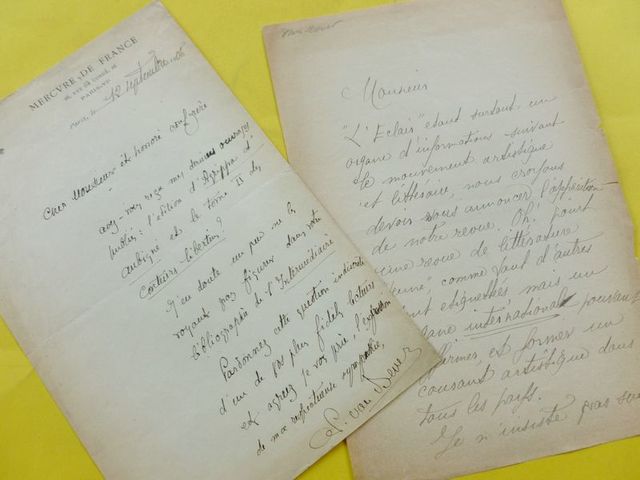 MERCVRE DE FRANCE
26, RVE DE CONDÉ, 26
PARIS-VIe
Paris, le 12 septembre 06
Cher Monsieur et honoré confrère
avez-vous reçu mes derniers ouvrages
publiés : l'édition d'Agrippa d'
Aubigné et le tome II des
Conteurs libertins ?
J'en doute un peu ne les
voyant pas figurer dans votre
bibliographie de l'Intermédiaire
Pardonnez cette question indiscrète
d'un de vos plus fidèles lecteurs
et agréez je vous prie, l'expression
de ma respectueuse sympathie,
Ad. van Bever
Monsieur
"L'Eclair" étant surtout, un
organe d'informations suivant
le mouvement artistique
et littéraire, nous croyons
devoir vous annoncer l'apparition
de notre revue. Oh! point
une revue de littérature
jeune, comme tant d'autres
sont étiquettées mais un
organe international pouvant
et former un
courant artistique dans
tous les pays.
Je n'insiste pas sur